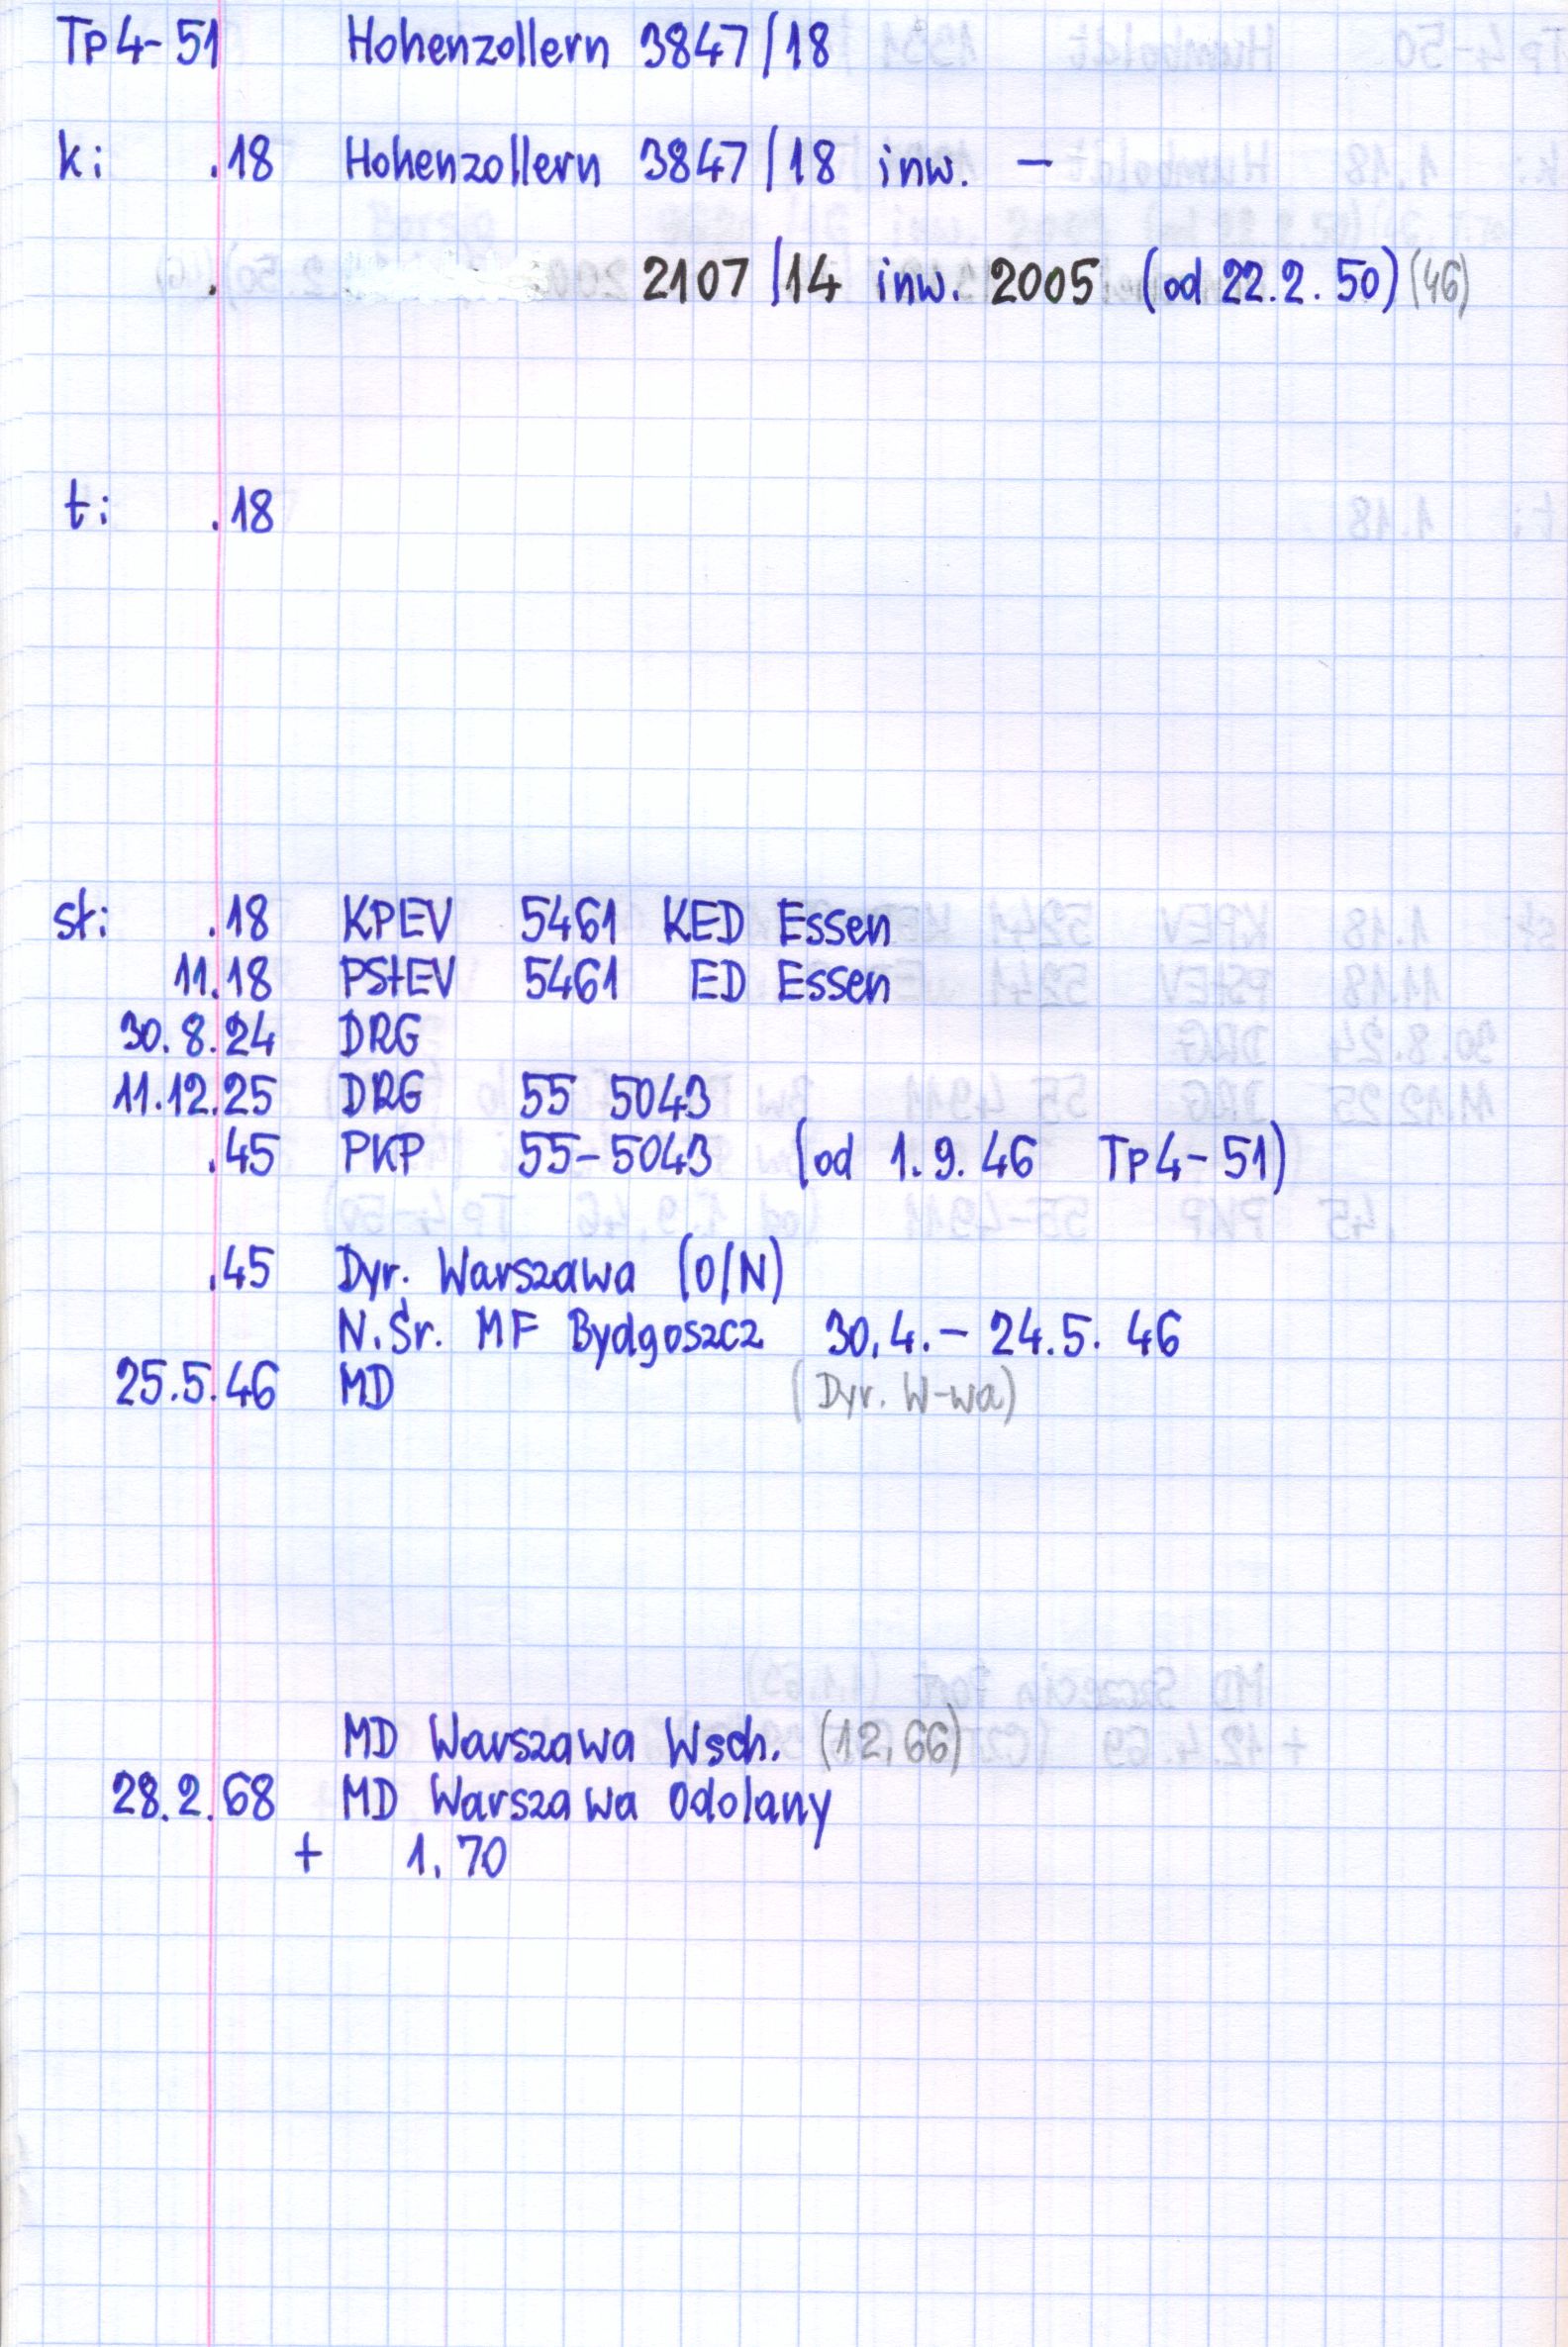 Tp4-51 Hohenzollern 3847/18
k: .18 Hohenzollern 3847/18 inw. -
. 2107/14 inw. 2005 (od 22.2.50) (46)
t: .18
st: .18 KPEV 5461 KED Essen
11.18 PStEV 5461 ED Essen
30.8.24 DRG
11.12.25 DRG 55 5043
.45 PKP 55-5043 (od 1.9.46 Tp4-51)
.45 Dyr. Warszawa (O/N)
N.Śr. MF Bydgoszcz 30.4.-24.5.46
25.5.46 MD (Dyr. W-wa)
MD Warszawa Wsch. (12,66)
28.2.68 MD Warszawa Odolany
+ 1.70